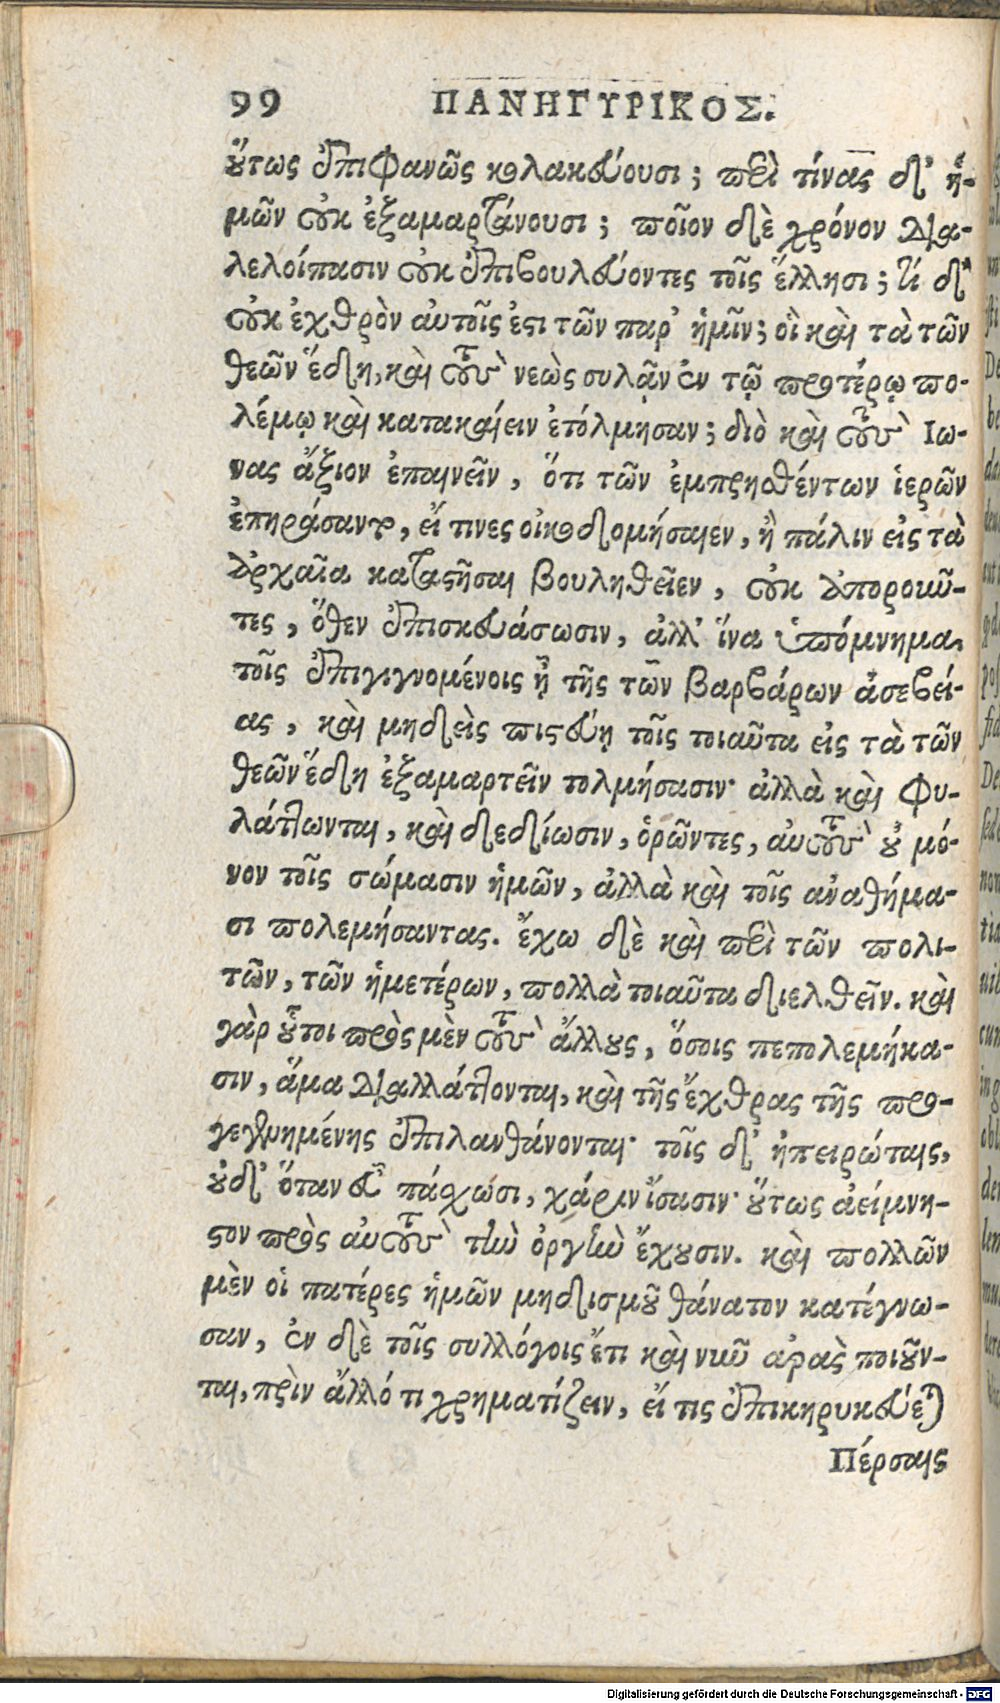 99 ΠΑΝΗΓΥΡΙΚΟΣ.
ὕτως ἐπιφανῶς κολακεύουσι; περὶ τίνας δ᾽ ἡ-
μῶν οὐκ ἐξαμαρτάνουσι; ποῖον δὲ χρόνον δια-
λελοίπασιν οὐκ ἐπιβουλεύοντες τοῖς ἕλλησι; τί δ᾽
οὐκ ἐχθρὸν αὐτοῖς ἐστι τῶν παρ᾽ ἡμῖν; οἳ καὶ τὰ τῶν
θεῶν ἕδη, καὶ τοὺς νεὼς συλᾷν ἐν τῷ προτέρῳ πο-
λέμῳ καὶ κατακαίειν ἐτόλμησαν; διὸ καὶ τοὺς Ιω-
νας ἄξιον ἐπαινεῖν, ὅτι τῶν ἐμπρησθέντων ἱερῶν
ἐπηράσαντο, εἴ τινες οἰκοδομήσαιεν, ἢ πάλιν εἰς τὰ
ἀρχαῖα καταστῆσαι βουληθεῖεν, οὐκ ἀποροῦν-
τες, ὅθεν ἐπισκευάσωσιν, ἀλλ᾽ ἵνα ὑπόμνημα
τοῖς ἐπιγιγνομένοις ᾖ τῆς τῶν βαρβάρων ἀσεβεί-
ας, καὶ μηδεὶς πιστεύῃ τοῖς τοιαῦτα εἰς τὰ τῶν
θεῶν ἕδη ἐξαμαρτεῖν τολμήσασιν· ἀλλὰ καὶ φυ-
λάττωνται, καὶ δεδίωσιν, ὁρῶντες, αὐτοὺς οὐ μό-
νον τοῖς σώμασιν ἡμῶν, ἀλλὰ καὶ τοῖς ἀναθήμα-
σι πολεμήσαντας. ἔχω δὲ καὶ περὶ τῶν πολι-
τῶν, τῶν ἡμετέρων, πολλὰ τοιαῦτα διελθεῖν. καὶ
γὰρ οὗτοι πρὸς μὲν τοὺς ἄλλους, ὅσοις πεπολεμήκα-
σιν, ἅμα διαλλάττονται, καὶ τῆς ἔχθρας τῆς προ-
γεγενημένης ἐπιλανθάνονται· τοῖς δ᾽ ἠπειρώταις,
οὐδ᾽ ὅταν εὖ πάσχωσι, χάριν ἴσασιν· οὕτως ἀείμνη-
στον πρὸς αὐτοὺς τὴν ὀργὴν ἔχουσιν. καὶ πολλῶν
μὲν οἱ πατέρες ἡμῶν μηδισμοῦ θάνατον κατέγνω-
σαν, ἐν δὲ τοῖς συλλόγοις ἔτι καὶ νῦν ἀρὰς ποιοῦν-
ται, πρὶν ἄλλό τι χρηματίζειν, εἴ τις ἐπικηρυκεύεται
Πέρσαις
Digitalisierung gefördert durch die Deutsche Forschungsgemeinschaft - DFG